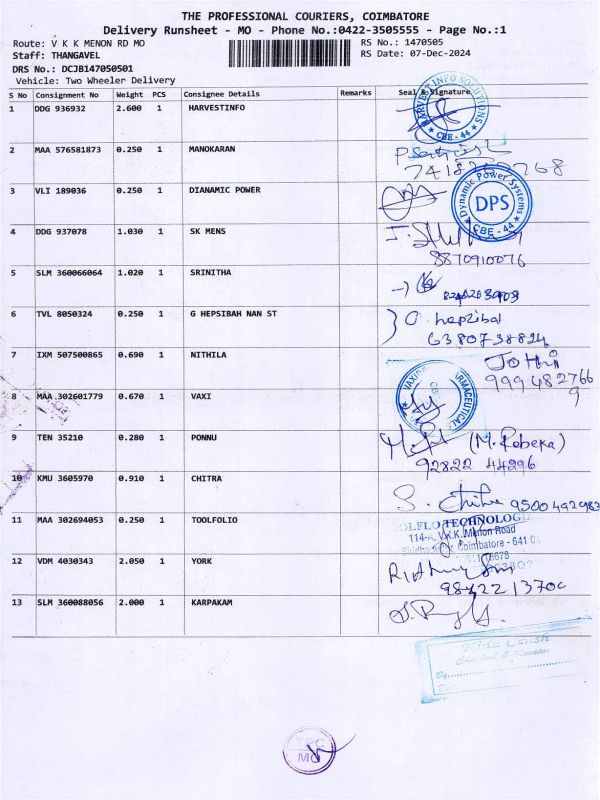 THE PROFESSIONAL COURIERS, COIMBATORE
Delivery Runsheet - MO - Phone No.:0422-3505555 - Page No.:1
Route: V K K MENON RD MO RS No.: 1470505
Staff: THANGAVEL RS Date: 07-Dec-2024
DRS No.: DCJB147050501
Vehicle: Two Wheeler Delivery
S No Consignment No Weight PCS Consignee Details Remarks Seal & Signature
1 DDG 936932 2.600 1 HARVESTINFO
CBE - 44
2 MAA 576581873 0.250 1 MANOKARAN
3 VLI 189036 0.250 1 DIANAMIC POWER
Dynamic Power Systems DPS CBE - 44
4 DDG 937078 1.030 1 SK MENS
8870910076
5 SLM 360066064 1.020 1 SRINITHA
6 TVL 8050324 0.250 1 G HEPSIBAH NAN ST
6380738824
7 IXM 507500865 0.690 1 NITHILA
Jothi
8 MAA 302601779 0.670 1 VAXI
9 TEN 35210 0.280 1 PONNU
(M. Rebeka)
92822 44296
10 KMU 3605970 0.910 1 CHITRA
S. Chitra 9500492983
11 MAA 302694053 0.250 1 TOOLFOLIO
TECHNOLOG
114-A, V.K.K. Menon Road
Coimbatore - 641 0
12 VDM 4030343 2.050 1 YORK
13 SLM 360088056 2.000 1 KARPAKAM
TPC
MO